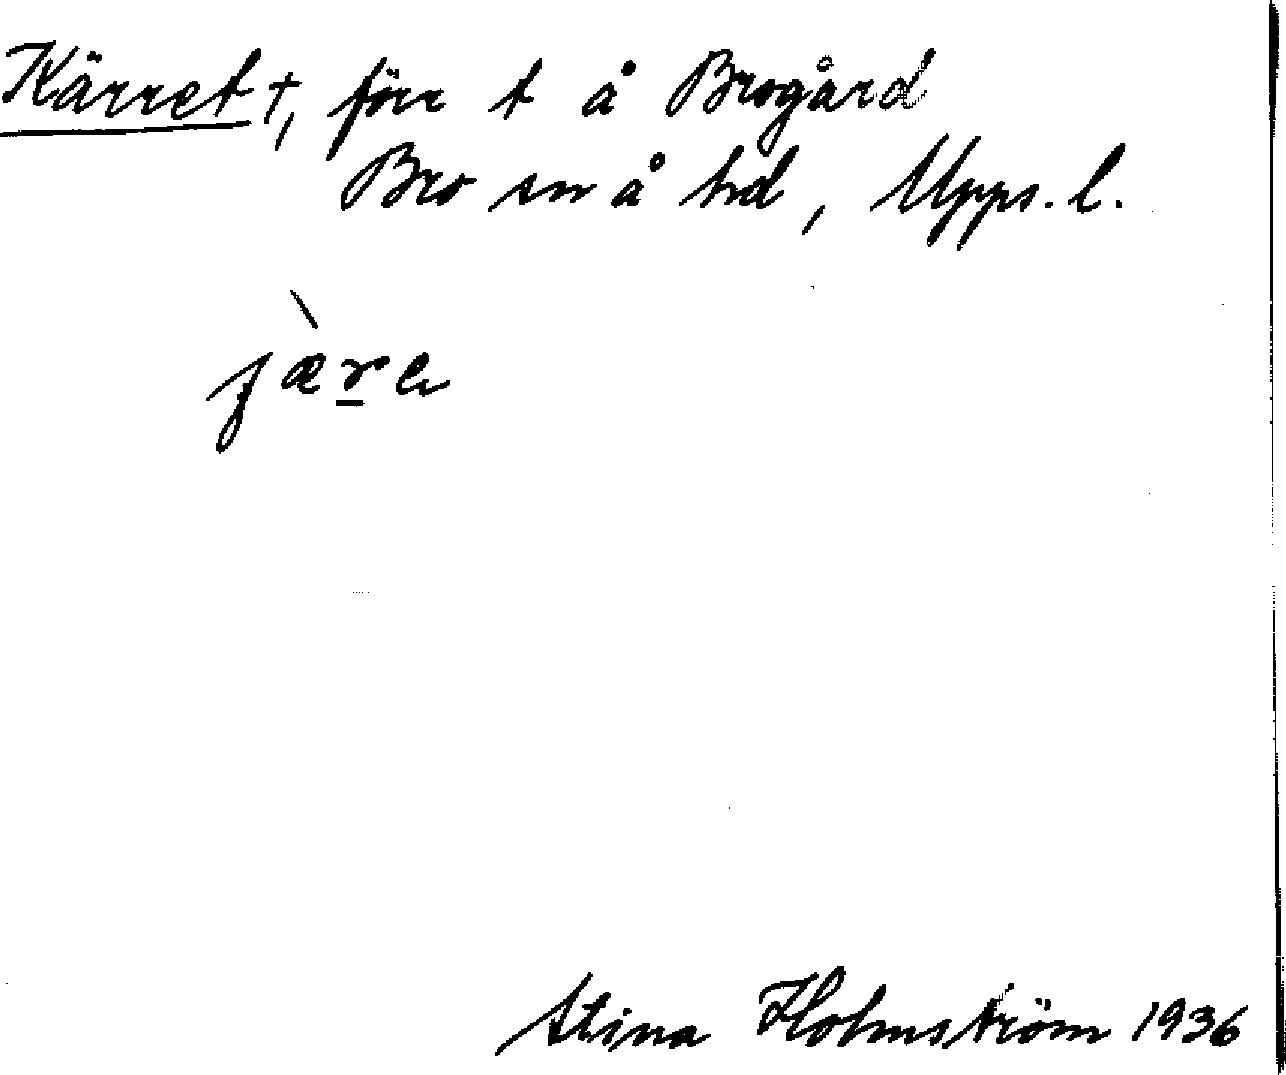 Kärret †, förr t å Brogård
Bro sn å hd, Upps. l.
Stina Holmström 1936